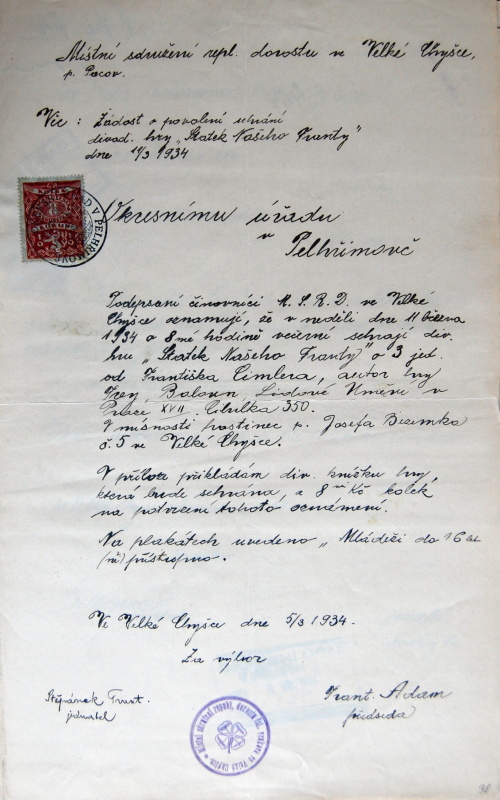 Místní sdružení repl. dorostu ve Velké Chyšce,
p. Pacov.
Věc: Žádost o povolení sehrání
divad. hry „Statek Našeho Franty"
dne 11/3 1934
Okresnímu úřadu
v Pelhřimově
Podepsaní činovníci M.S.R.D. ve Velké
Chyšce oznamují, že v neděli dne 11 března
1934 o 8mé hodině večerní sehrají div.
hru „Statek Našeho Franty" o 3 jed.
od Františka Cimlera, autor hry
Lidové Umění v
Praze XVII. Cibulka 350.
V místnosti hostinec p. Josefa
č. 5 ve Velké Chyšce.
V příloze přikládám div. knížku hry,
která bude sehrána, a 8 Kč kolek
na potvrzení tohoto oznámení.
Na plakátech uvedeno „Mládeži do 16 let
(ne) přístupno.
Ve Velké Chyšce dne 5/3 1934.
Za výbor
Štěpánek Frant.
jednatel
Frant. Adam
předseda
38